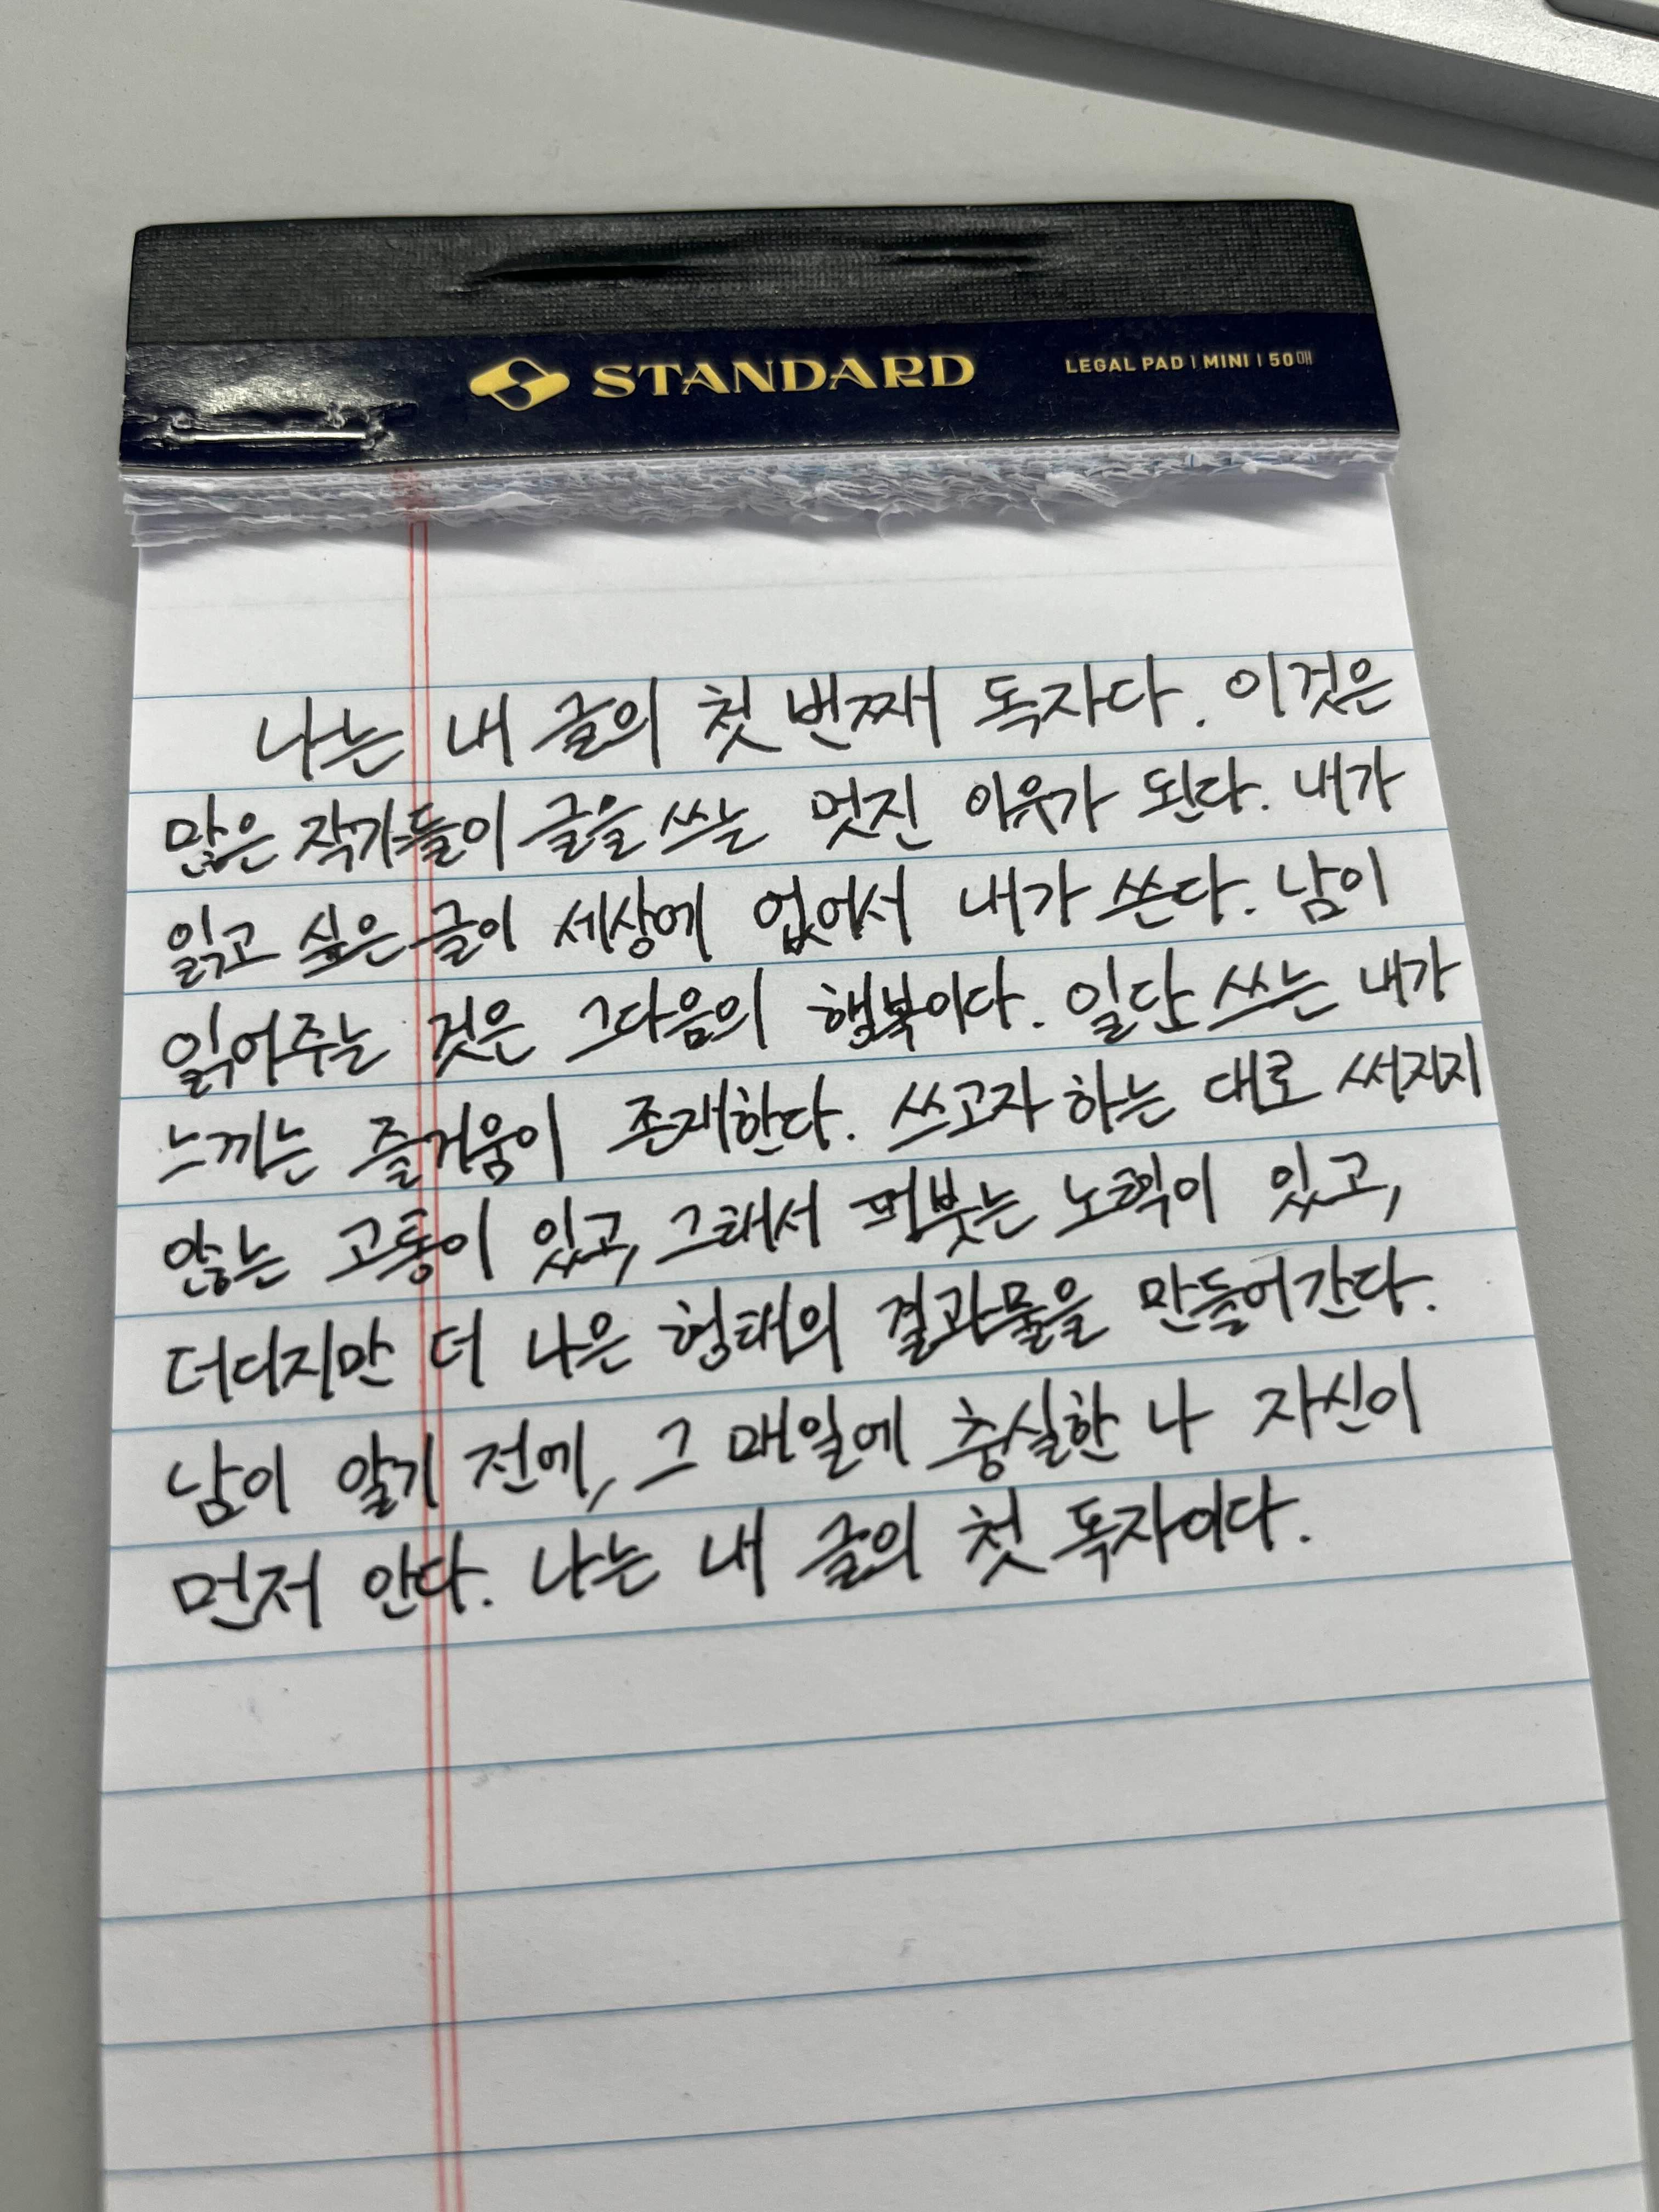 STANDARD
LEGAL PAD | MINI | 50매
나는 내 글의 첫 번째 독자다. 이것은
많은 작가들이 글을 쓰는 멋진 이유가 된다. 내가
읽고 싶은 글이 세상에 없어서 내가 쓴다. 남이
읽어주는 것은 그다음의 행복이다. 일단 쓰는 내가
느끼는 즐거움이 존재한다. 쓰고자 하는 대로 써지지
않는 고통이 있고, 그래서 퍼붓는 노력이 있고,
더디지만 더 나은 형태의 결과물을 만들어간다.
남이 알기 전에, 그 매일에 충실한 나 자신이
먼저 안다. 나는 내 글의 첫 독자이다.